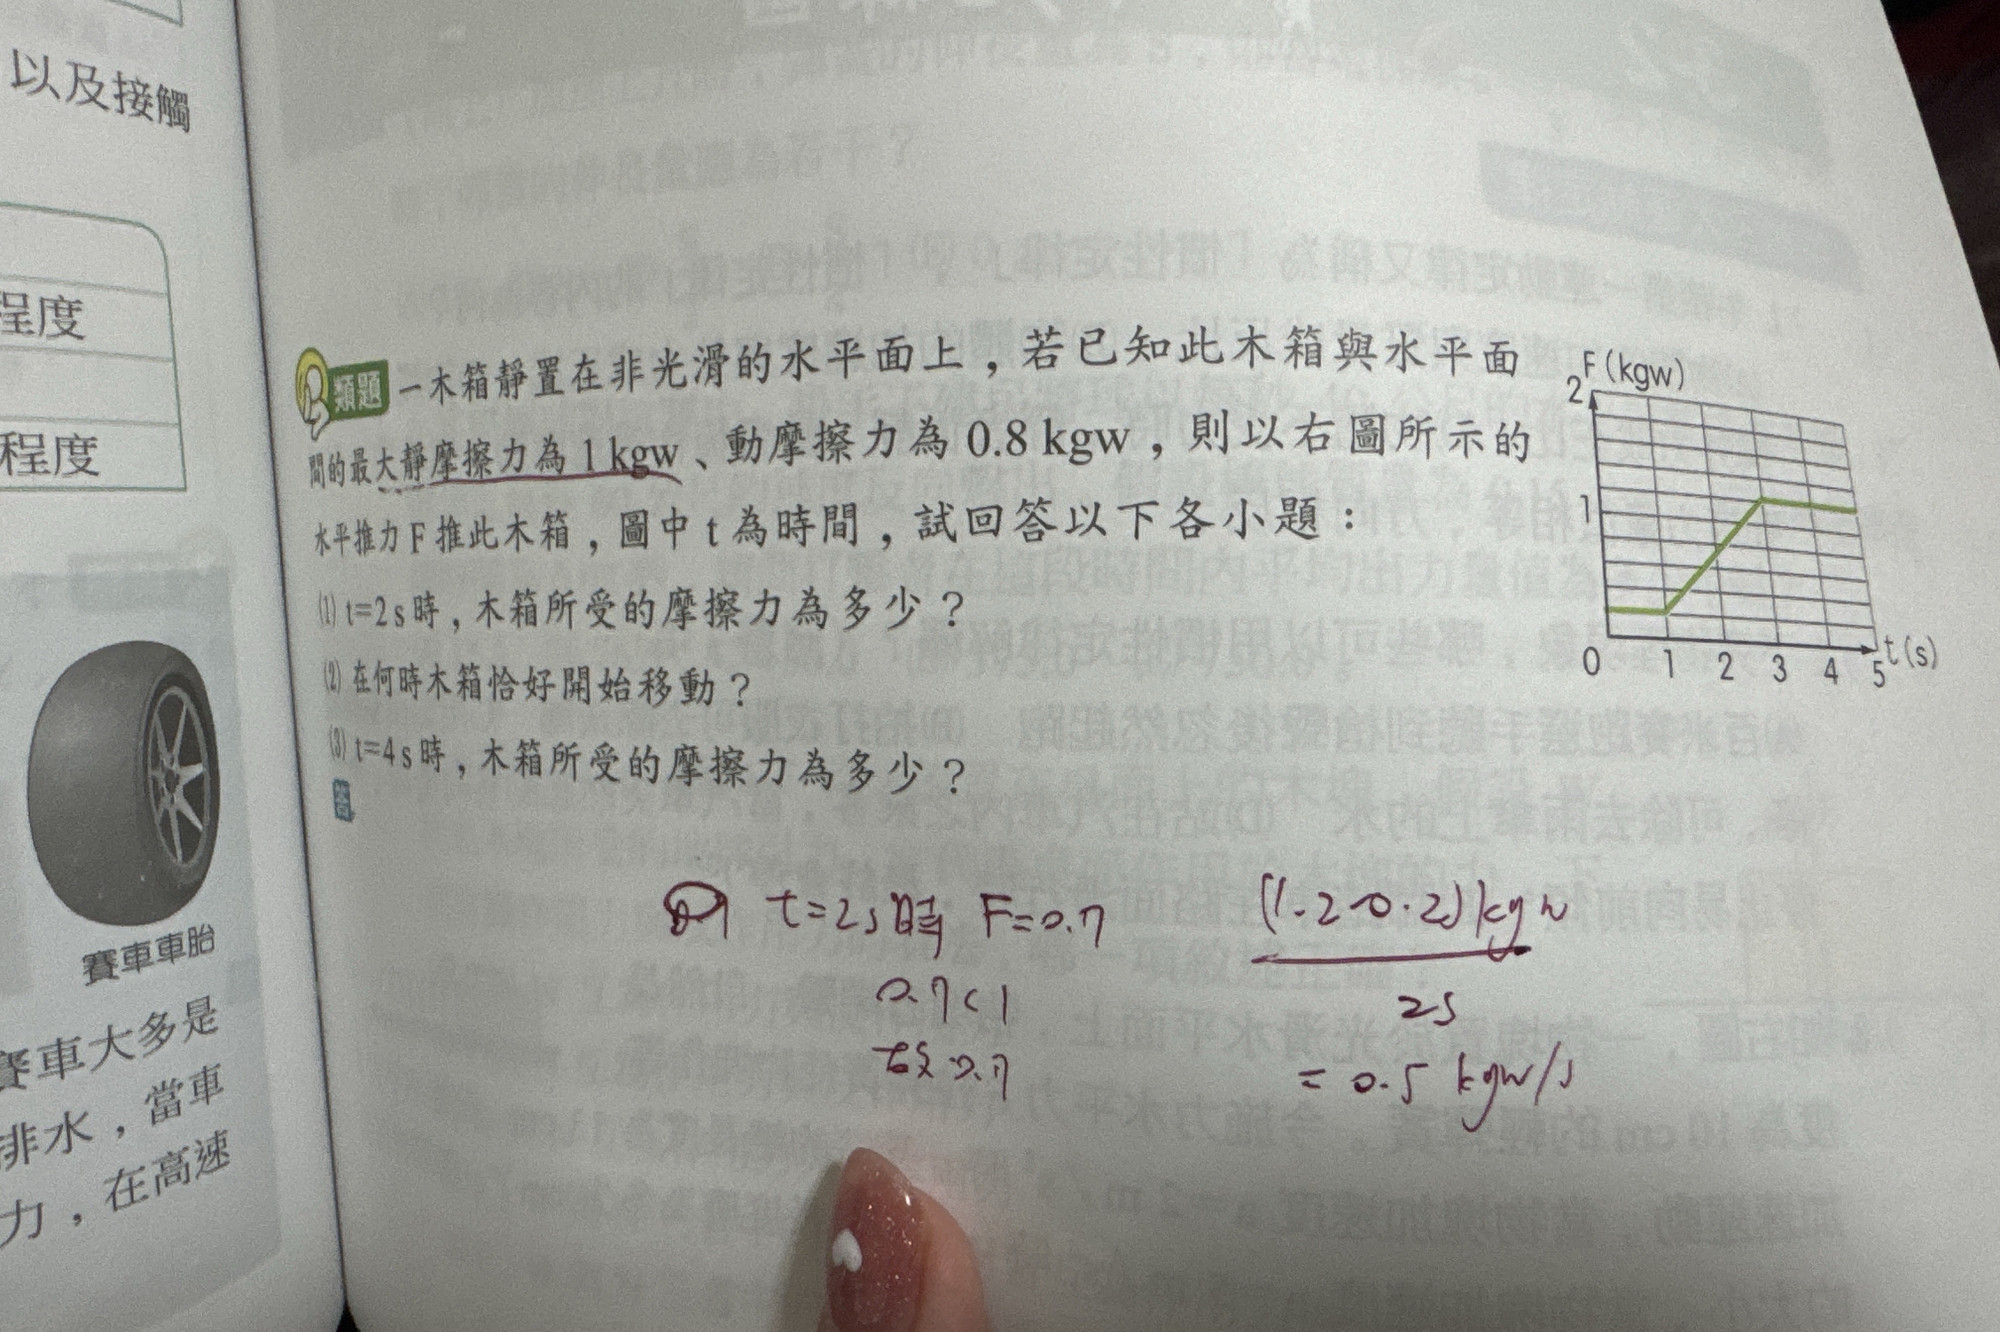 以及接觸
程度
程度
賽車車胎
賽車大多是
排水，當車
力，在高速
類題 一木箱靜置在非光滑的水平面上，若已知此木箱與水平面
間的最大靜摩擦力為 1 kgw、動摩擦力為 0.8 kgw，則以右圖所示的
水平推力 F 推此木箱，圖中 t 為時間，試回答以下各小題：
(1) t=2 s 時，木箱所受的摩擦力為多少？
(2) 在何時木箱恰好開始移動？
(3) t=4 s 時，木箱所受的摩擦力為多少？
答
F(kgw)
2
1
0 1 2 3 4 5 t(s)
t=2s時 F=0.7
0.7<1
故0.7
(1.2-0.2)kgw
2s
= 0.5 kgw/s